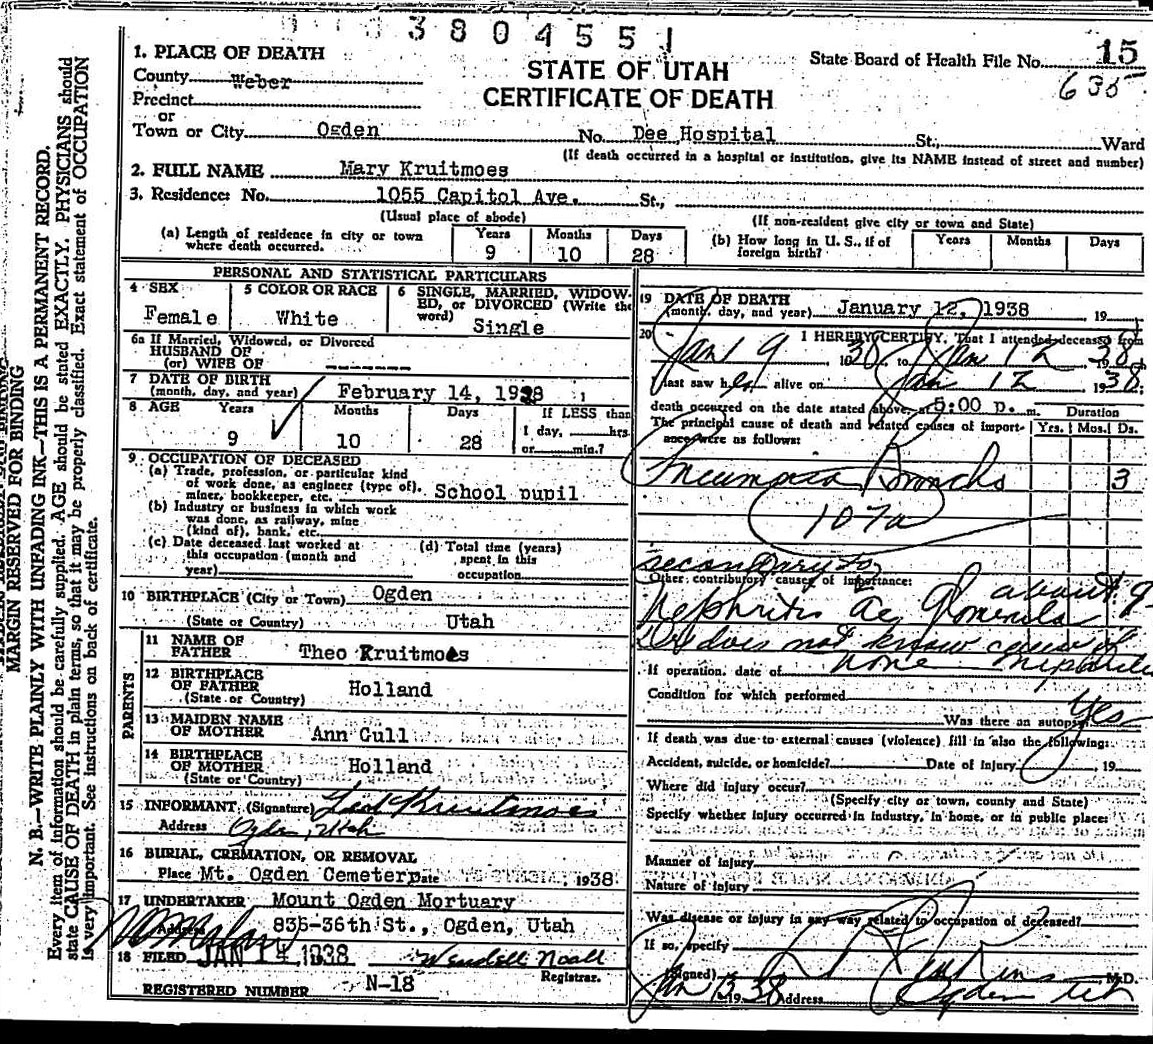 3804551
15
State Board of Health File No.
635
STATE OF UTAH
CERTIFICATE OF DEATH
1. PLACE OF DEATH
County Weber
Precinct
or
Town or City Ogden No. Dee Hospital St., Ward
(If death occurred in a hospital or institution, give its NAME instead of street and number)
2. FULL NAME Mary Kruitmoes
3. Residence: No. 1055 Capitol Ave. St.,
(Usual place of abode) (If non-resident give city or town and State)
(a) Length of residence in city or town where death occurred. Years 9 Months 10 Days 28
(b) How long in U. S., if of foreign birth? Years Months Days
PERSONAL AND STATISTICAL PARTICULARS
4 SEX Female
5 COLOR OR RACE White
6 SINGLE, MARRIED, WIDOWED, or DIVORCED (Write the word) Single
6a If Married, Widowed, or Divorced
HUSBAND OF
(or) WIFE OF -------
7 DATE OF BIRTH
(month, day, and year) February 14, 1928
8 AGE Years 9 Months 10 Days 28 If LESS than 1 day, hrs. or min.?
9 OCCUPATION OF DECEASED
(a) Trade, profession, or particular kind
of work done, as engineer (type of),
miner, bookkeeper, etc. School pupil
(b) Industry or business in which work
was done, as railway, mine
(kind of), bank, etc.
(c) Date deceased last worked at
this occupation (month and
year)
(d) Total time (years)
spent in this
occupation
10 BIRTHPLACE (City or Town) Ogden
(State or Country) Utah
PARENTS
11 NAME OF
FATHER Theo Kruitmoes
12 BIRTHPLACE
OF FATHER Holland
(State or Country)
13 MAIDEN NAME
OF MOTHER Ann Gull
14 BIRTHPLACE
OF MOTHER Holland
(State or Country)
15 INFORMANT (Signature) Ted Kruitmoes
Address Ogden, Utah
16 BURIAL, CREMATION, OR REMOVAL
Place Mt. Ogden Cemetery Date 1938
17 UNDERTAKER Mount Ogden Mortuary
Address 836-36th St., Ogden, Utah
18 FILED JAN 14 1938 Wendell Noall
Registrar.
REGISTERED NUMBER N-18
19 DATE OF DEATH
(month, day, and year) January 12, 1938 19
20 I HEREBY CERTIFY, That I attended deceased from
Jan 9 1938, to Jan 12 1938
last saw her alive on Jan 12 1938
death occurred on the date stated above, at 5:00 p. m. Duration
The principal cause of death and related causes of importance were as follows: Yrs. Mos. Ds.
Pneumonia Broncho 3
107a
secondary to
Other contributory causes of importance:
Nephritis Ac Glomerula about 9
Dr does not know cause of
If operation, date of none
Condition for which performed
Was there an autopsy Yes
If death was due to external causes (violence) fill in also the following:
Accident, suicide, or homicide? Date of Injury 19
Where did injury occur?
(Specify city or town, county and State)
Specify whether injury occurred in industry, in home, or in public place:
Manner of injury
Nature of Injury
Was disease or injury in any way related to occupation of deceased?
If so, specify
(Signed) M.D.
Jan 13 1938 Address Ogden Utah
MARGIN RESERVED FOR BINDING
N. B.—WRITE PLAINLY WITH UNFADING INK—THIS IS A PERMANENT RECORD.
Every item of information should be carefully supplied. AGE should be stated EXACTLY. PHYSICIANS should
state CAUSE OF DEATH in plain terms, so that it may be properly classified. Exact statement of OCCUPATION
is very important. See instructions on back of certificate.